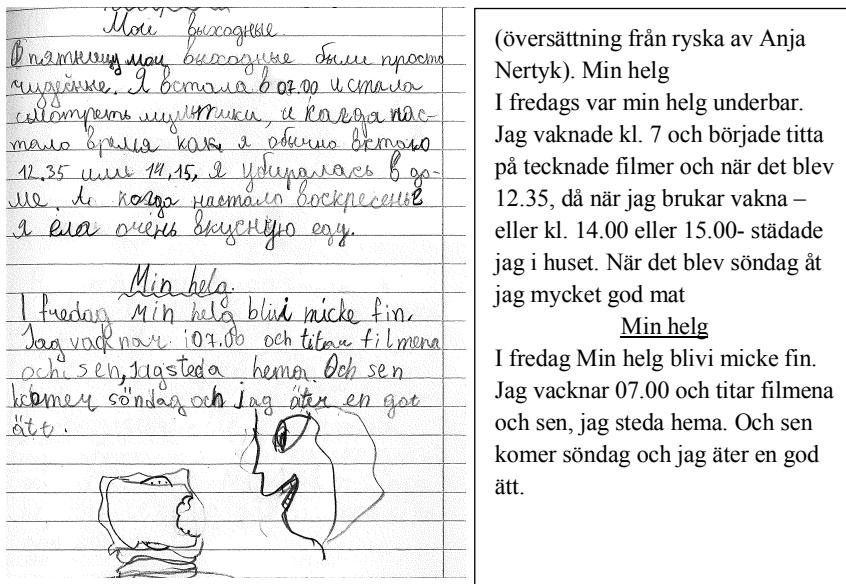 Мои выходные.
В пятницу мои выходные были просто
чудесные. Я встала в 07.00 и стала
смотреть мультики, и когда нас-
тало время как я обычно встаю
12.35 или 14,15, я убиралась в до-
ме. А когда настало воскресенье
я ела очень вкусную еду.
Min helg.
I fredag Min helg blivi micke fin.
Jag vacknar i 07.00 och titar filmena
och sen, Jag steda hema. Och sen
komer söndag och jag äter en got
ätt.
(översättning från ryska av Anja
Nertyk). Min helg
I fredags var min helg underbar.
Jag vaknade kl. 7 och började titta
på tecknade filmer och när det blev
12.35, då när jag brukar vakna –
eller kl. 14.00 eller 15.00- städade
jag i huset. När det blev söndag åt
jag mycket god mat
Min helg
I fredag Min helg blivi micke fin.
Jag vacknar 07.00 och titar filmena
och sen, jag steda hema. Och sen
komer söndag och jag äter en god
ätt.